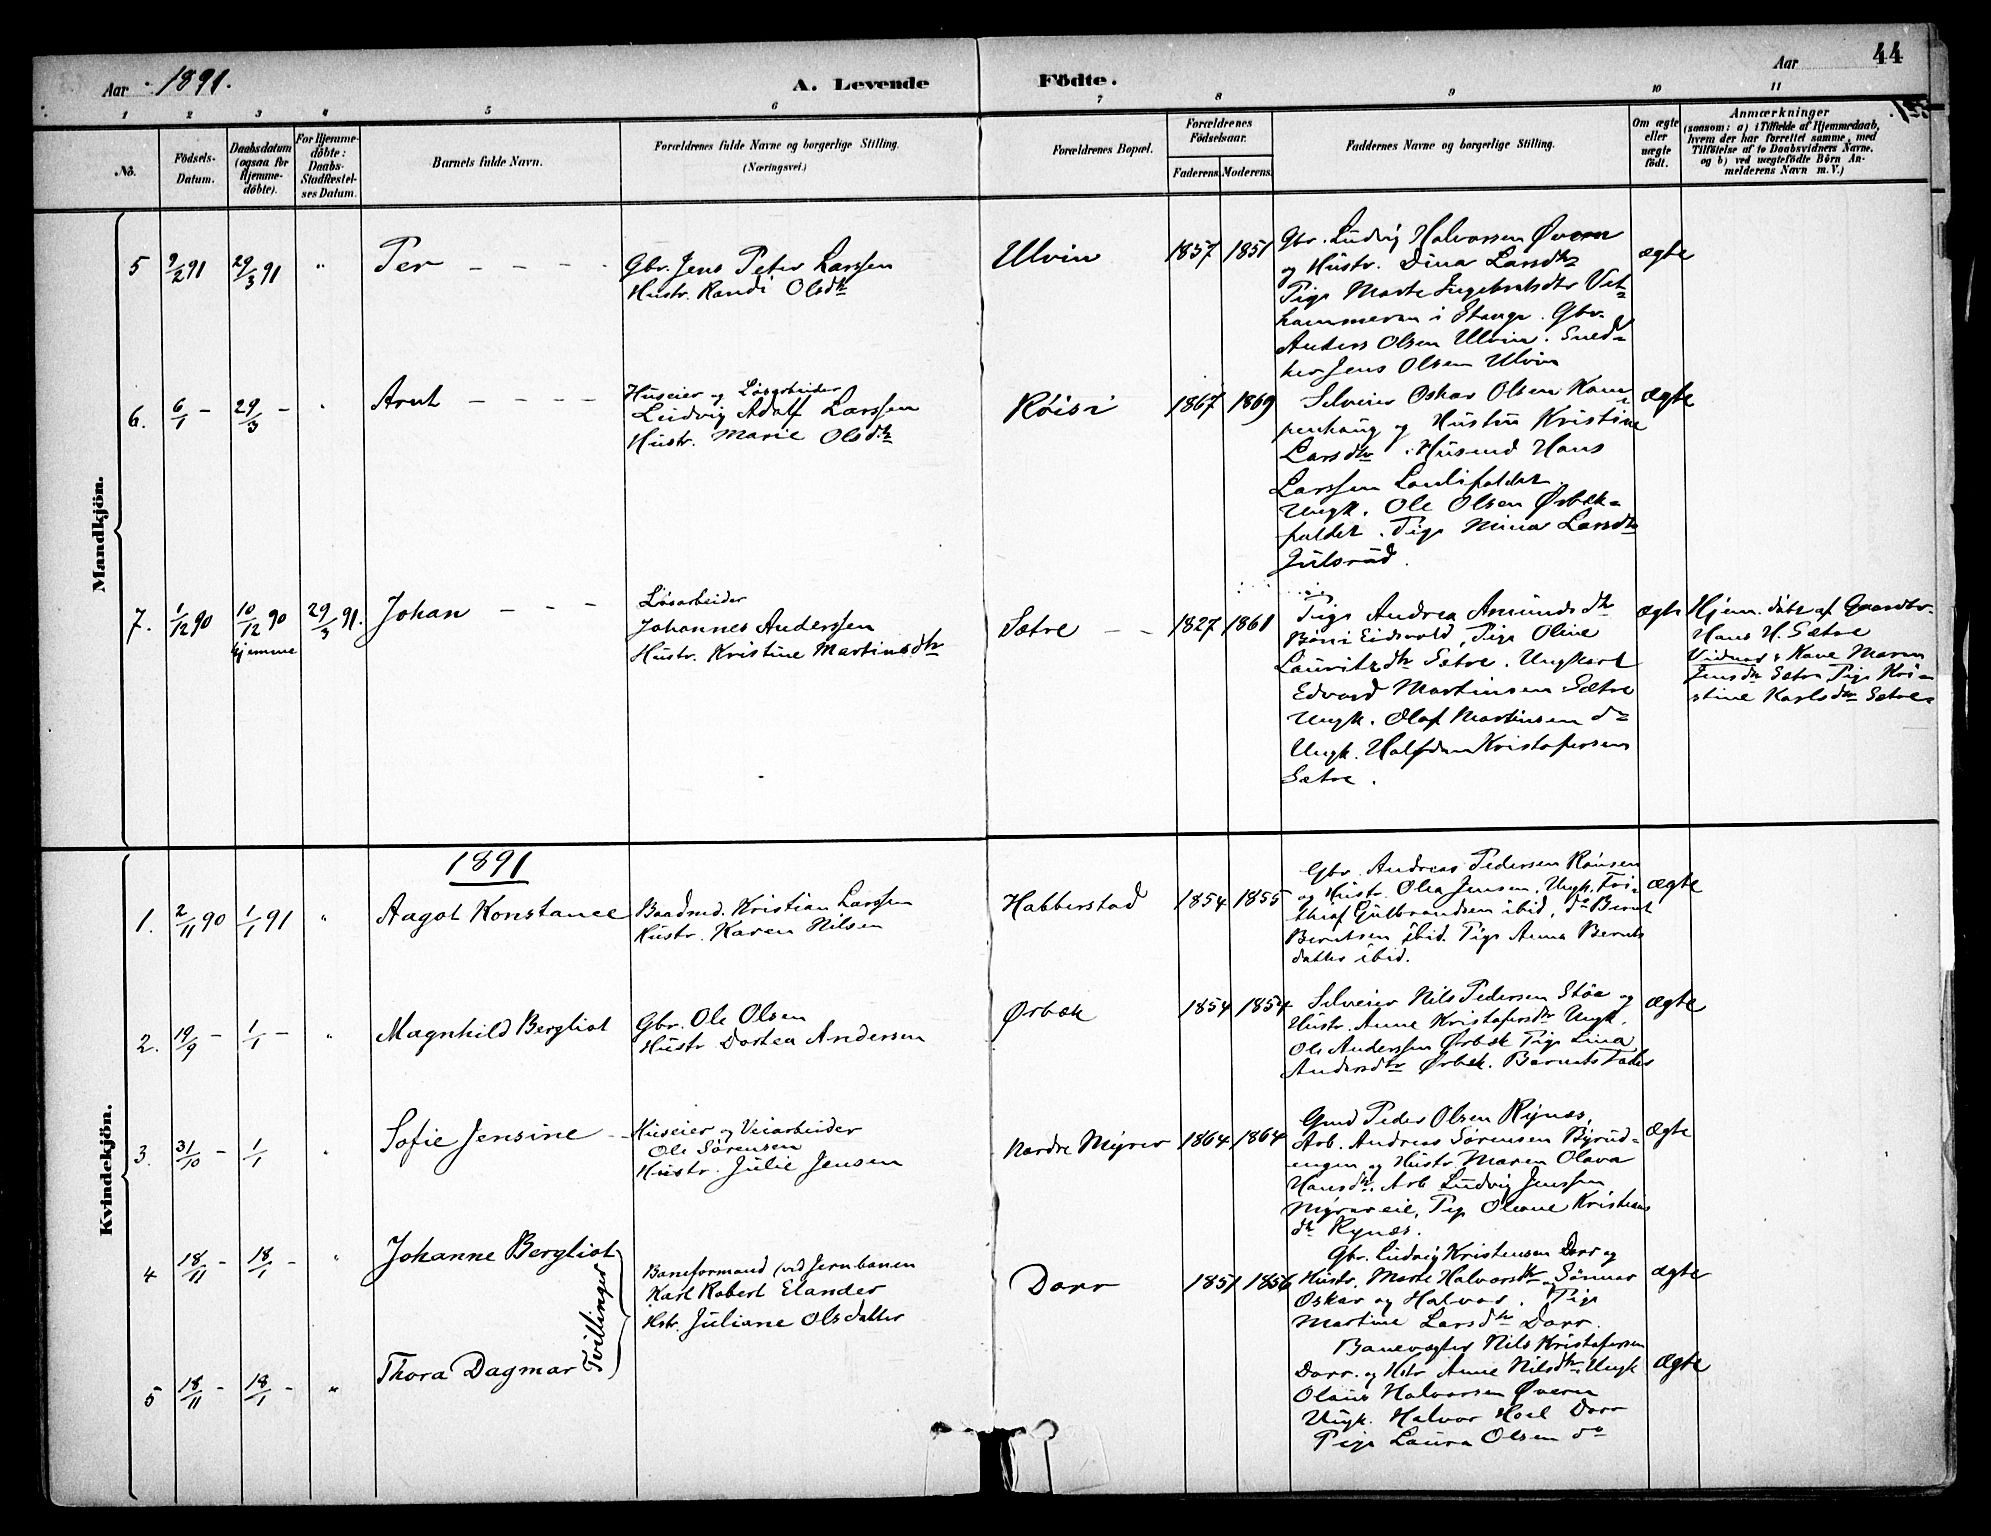 Aar 1891.
A. Levende Födte.
Aar
44
1 2 3 4 5 6 7 8 9 10 11
No.
Födsels-Datum.
Daabsdatum (ogsaa for Hjemme-döbte).
For Hjemme-döbte: Daabs-Stadfæstel-ses Datum.
Barnets fulde Navn.
Forældrenes fulde Navne og borgerlige Stilling.
(Næringsvei.)
Forældrenes Bopæl.
Forældrenes Födselsaar.
Faderens. Moderens.
Faddernes Navne og borgerlige Stilling.
Om ægte eller uægte födt.
Anmærkninger
(saasom: a) i Tilfælde af Hjemmedaab,
hvem der har forrettet samme, med
Tilföielse af to Daabsvidners Navne,
og b) ved uægtefödte Börn An-
melderens Navn m. V.)
Mandkjön.
5 9/2 91 29/3 91 " Per
Gbr. Jens Peter Larssen
Hustr. Randi Olsdtr
Ulvin 1857 1851
Gbr. Ludvig Halvorsen Øveren
og Hustr. Dina Larsdtr
Pige Marte Ingebretsdtr Vet-
hammeren i Stange. Gbr.
Anders Olsen Ulvin. Sned-
ker Jens Olsen Ulvin
ægte
6. 6/1 - 29/3 - " Arnt
Huseier og Løsarbeider
Ludvig Adolf Larssen
Hustr. Marie Olsdtr
Røisi 1867 1869
Selveier Oskar Olsen Kam-
penhaug og Hustru Kristine
Larsdtr. Husmd Hans
Larssen
Ungk. Ole Olsen Ørbæk-
faldet. Pige Mina Larsdtr
Julsrud.
ægte
7. 1/12 90 10/12 90 hjemme 29/3 91. Johan
Løsarbeider
Johannes Anderssen
Hustr. Kristine Martinsdtr
Sætre 1827 1861
Pige Andrea Amundsdtr
Bøni Eidsvold, Pige Oline
Lauritzdtr Sætre. Ungkarl
Edvard Martinsen Sætre
Ungk. Olaf Martinsen do
Ungk. Halfdan Kristofersen
Sætre.
ægte
Hjem. døbt af Gaardbr.
Hans H. Sætre
Vidner: Kone Maren
Jensdtr Sætre Pige Kri-
stine Karlsdtr Sætre
Kvindekjön.
1891
1. 2/11 90 1/1 91 " Aagot Konstance
Baadmd. Kristian Larssen
Hustr. Karen Nilsen
Habberstad 1854 1855
Gbr. Andreas Pedersen Raasen
og Hustr. Olea Jensen. Ungk. Tri-
Gulbrandsen ibid, do Bernt
Berntsen ibid. Pige Anna Bernts
datter ibid.
ægte
2. 19/9 - 1/1 - " Magnhild Bergliot
Gbr. Ole Olsen
Hustr Dortea Andersen
Ørbæk 1854 1854
Selveier Nils Pedersen Støa og
Hustr. Anne Kristofersdtr Ungk.
Ole Anderssen Ørbæk Pige Lina
Andersdtr Ørbæk. Barnets Fader
ægte
3. 31/10 - 1/1 " Sofie Jensine
Huseier og Veiarbeider
Ole Sørensen
Hustr. Julie Jensen
Nordre Myrer 1864 1864
Gmd Peder Olsen Rynæs,
Arb. Andreas Sørensen Byrud-
engen og Hustr Maren Olava
Hansdtr. Arb Ludvig Jenssen
Myrereie, Pige Oleane Kristians
dtr Rynæs.
ægte
4 18/11 - 18/1 - " Johanne Bergliot
Tvillinger
Baneformand (ved Jernbanen
Karl Robert Elander
Hstr. Juliane Olsdatter
Dorr 1851 1856
Gbr. Ludvig Kristensen Dorr og
Hustr. Marte Halvorsdtr Sønner
Oskar og Halvor. Pige
Martine Larsdtr Dorr.
ægte
5 18/11 - 18/1 - " Thora Dagmar
Banevogter Nils Kristofersen
Dorr og Hstr Anne Nilsdtr Ungk
Olaus Halvorsen Øveren
Ungk. Halvor Hoel Dorr
Pige Laura Olsen do
ægte